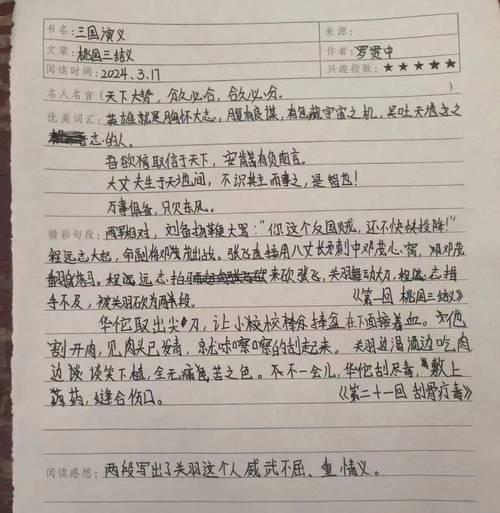 书名:三国演义
来源:
文章:桃园三结义
作者:罗贯中
阅读时间:2024.3.17
兴趣指数:★★★★★
名人名言(天下大势,分久必合,合久必分。)
优美词汇:英雄就是胸怀大志,腹有良谋,有包藏宇宙之机,吴吐天地之
志的人。
吾欲取信于天下,安肯有负前言。
大丈夫生于天地间,不识其主而事之,是智也!
万事俱备,只欠东风。
精彩句段:两军相对,刘备扬鞭大骂:"你这个反国贼,还不快快投降!"
程远志大怒,命副将邓茂出战。张飞直接用八丈长矛刺中邓茂心窝,邓茂
翻落马。程远志拍马来砍张飞,关羽舞动大刀,程远志措
手不及,被关羽砍为两段。
《第一回 桃园三结义》
华佗取出尖刀,让小校捧盆在下面接着血。
割开肉,见肉已发青,就嚓嚓的刮起来。关羽边喝酒边吃肉
边谈谈笑下植,全无痛苦之色。不一会儿,华佗刮尽毒,敷上
药药,缝合伤口。
《第二十一回 刮骨疗毒》
阅读感想:两段写出了关羽这个人威武不屈、重情义。